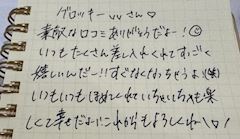 グロッキーvvさん♡
素敵な口コミありがとうだよー！☺
いつもたくさん差し入れくれてすごく
嬉しいんだー!!すぐなくなっちゃうよ(笑)
いつもいつもほめてくれていちゃいちゃも楽
しくて幸せだよ♡これからもよろしくねー！